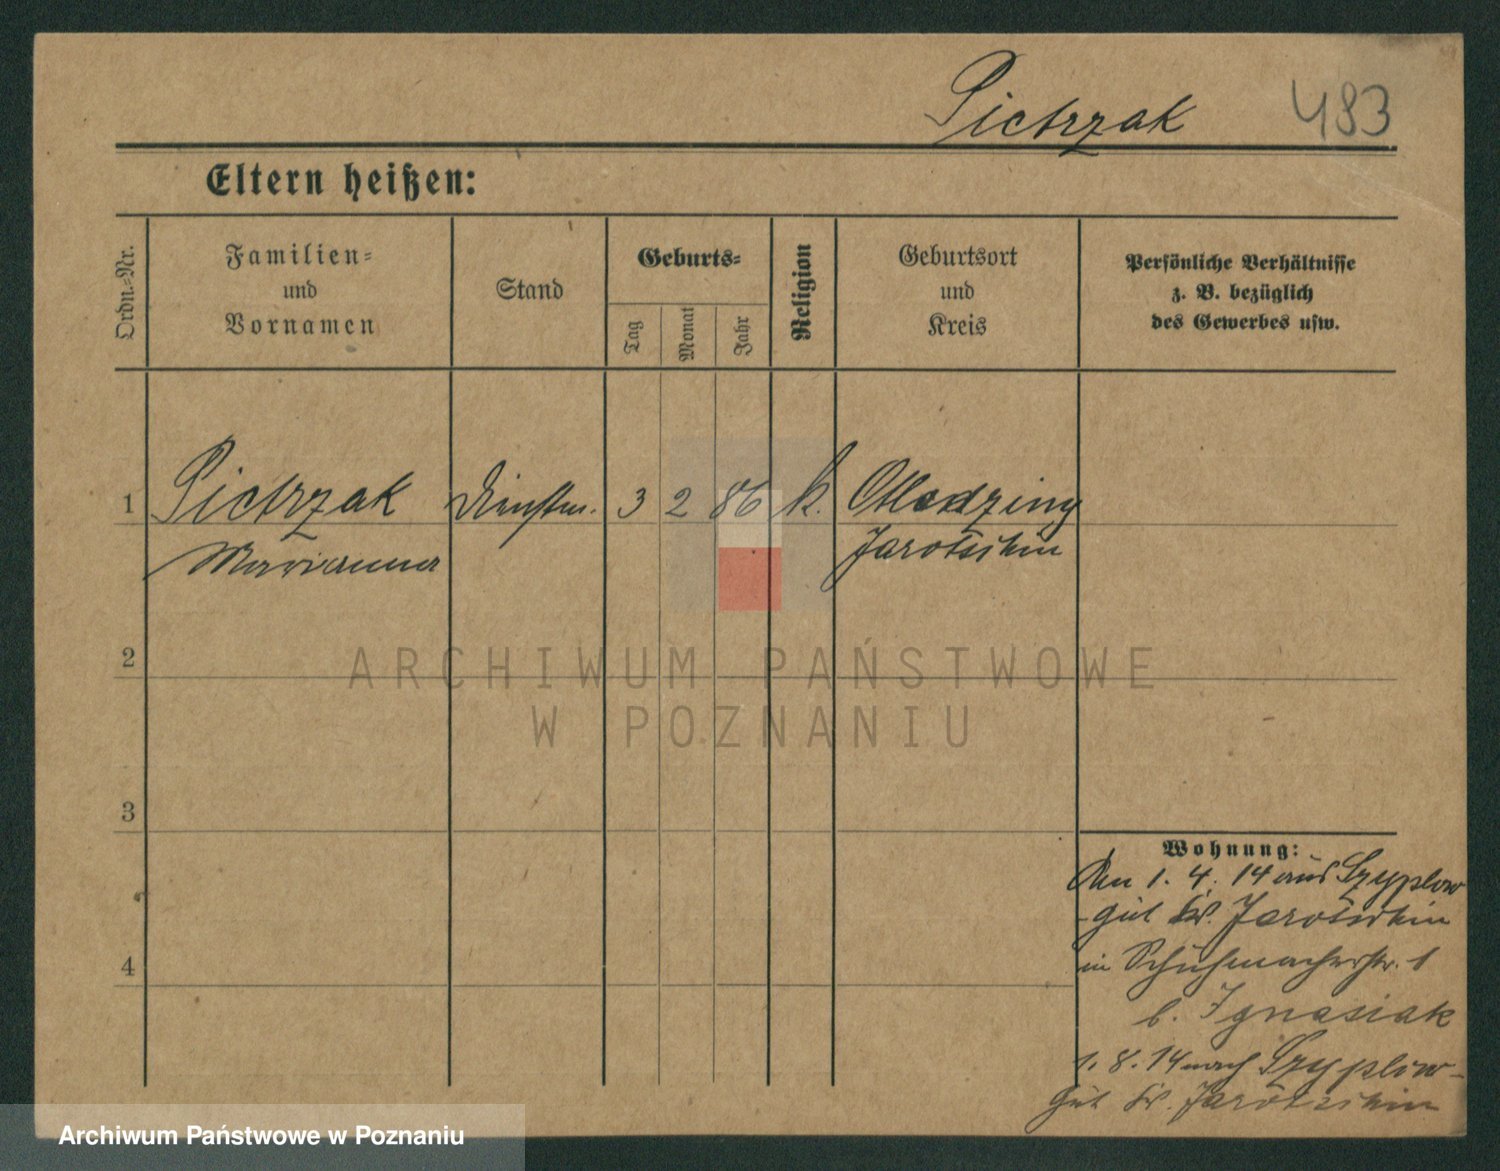 Pietrzak 483
Eltern heißen:
Ordn.-Nr.
Familien-
und
Vornamen
Stand
Geburts-
Tag
Monat
Jahr
Religion
Geburtsort
und
Kreis
Persönliche Verhältnisse
z. B. bezüglich
des Gewerbes usw.
1 Pietrzak Dienstm. 3 2 86 k.
Marianna Jarotschin
2
ARCHIWUM PAŃSTWOWE
W POZNANIU
3
4
Wohnung:
Am 1. 4. 14 aus Szyplow
-gut Kr. Jarotschin
in Schuhmacherstr. 1
b. Ignasiak
1. 8. 14 nach Szyplow-
gut Kr. Jarotschin
Archiwum Państwowe w Poznaniu